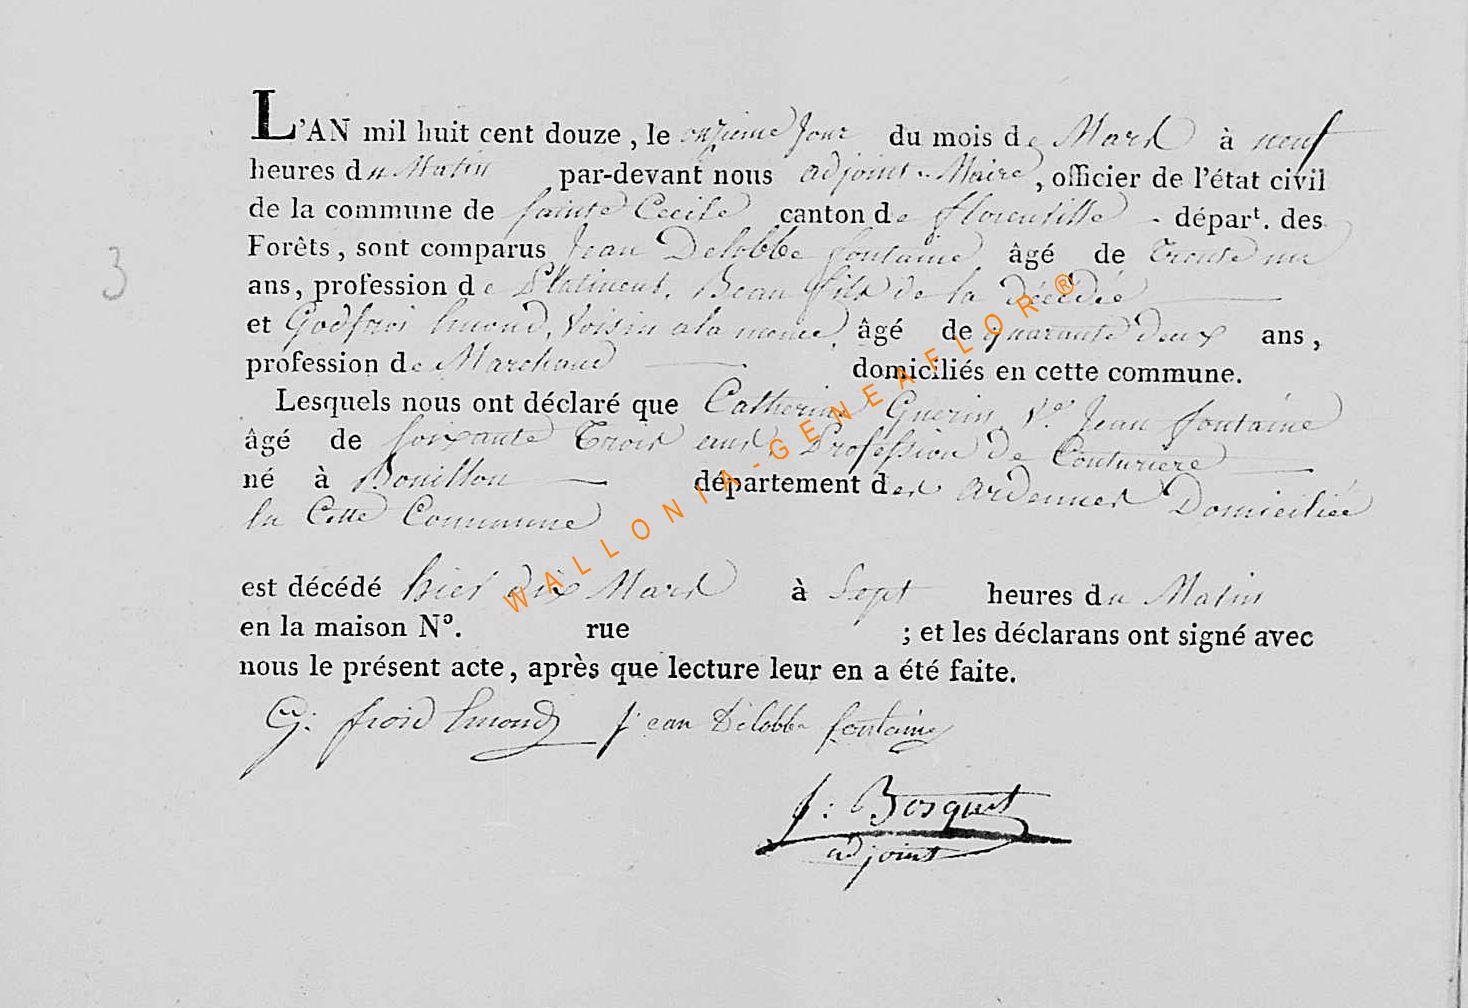 L'AN mil huit cent douze, le onzieme Jour du mois de Mars à neuf
heures du Matin par-devant nous adjoint Maire, officier de l'état civil
de la commune de Sainte Cecile canton de florenville départ. des
Forêts, sont comparus Jean Delobbe fontaine âgé de Trente un
ans, profession de Platineur, Beau fils de la Décédée
et Godfroi Emond, Voisin a la meme, âgé de quarante deux ans,
profession de Marchand domiciliés en cette commune.
Lesquels nous ont déclaré que Catherine Guerin, Ve. Jean fontaine
âgé de soixante Trois ans, Profession de Couturiere
né à Bouillon département des ardennes Domiciliée
en Cette Commune
est décédé hier dix Mars à Sept heures du Matin
en la maison No. rue ; et les déclarans ont signé avec
nous le présent acte, après que lecture leur en a été faite.
G: froid Emond Jean Delobbe fontaine
J: Bosquet
adjoint
3
WALLONIA-GENEAFLOR®